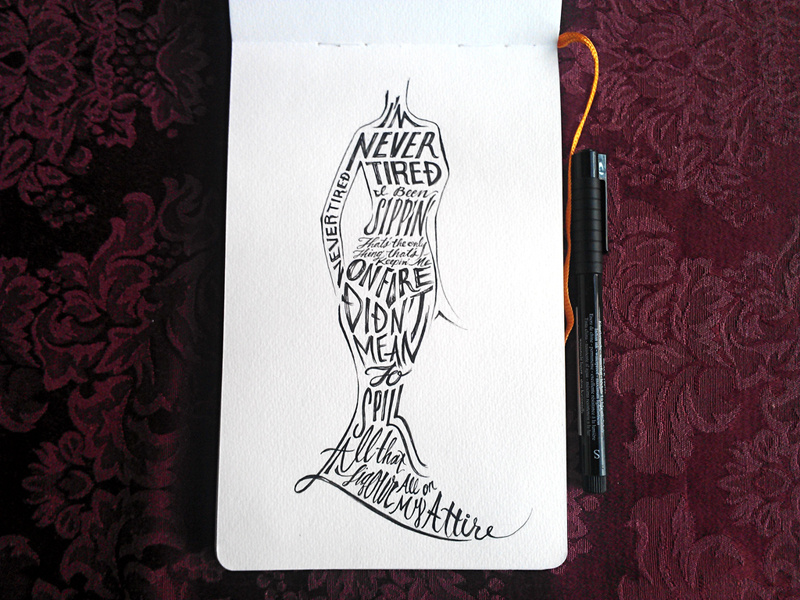 I'M
NEVER
TIRED
I Been
SIPPIN'
That's the only
Thing that's
Keepin' Me
ON FIRE
DIDN'T
MEAN
To
SPILL
All that
Liquor All on
My Attire
NEVER TIRED
S